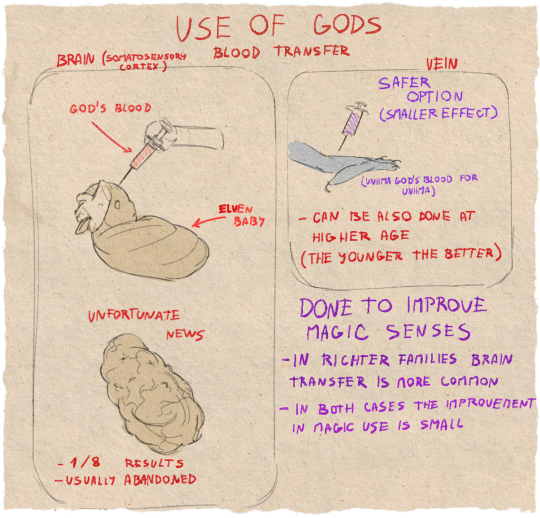 USE OF GODS
BLOOD TRANSFER
BRAIN (SOMATOSENSORY
CORTEX)
GOD'S BLOOD
ELVEN
BABY
UNFORTUNATE
NEWS
- 1/8 RESULTS
- USUALLY ABANDONED
VEIN
SAFER
OPTION
(SMALLER EFFECT)
(UNIIMA GOD'S BLOOD FOR
UNIIMA)
- CAN BE ALSO DONE AT
HIGHER AGE
(THE YOUNGER THE BETTER)
DONE TO IMPROVE
MAGIC SENSES
- IN RICHTER FAMILIES BRAIN
TRANSFER IS MORE COMMON
- IN BOTH CASES THE IMPROVEMENT
IN MAGIC USE IS SMALL